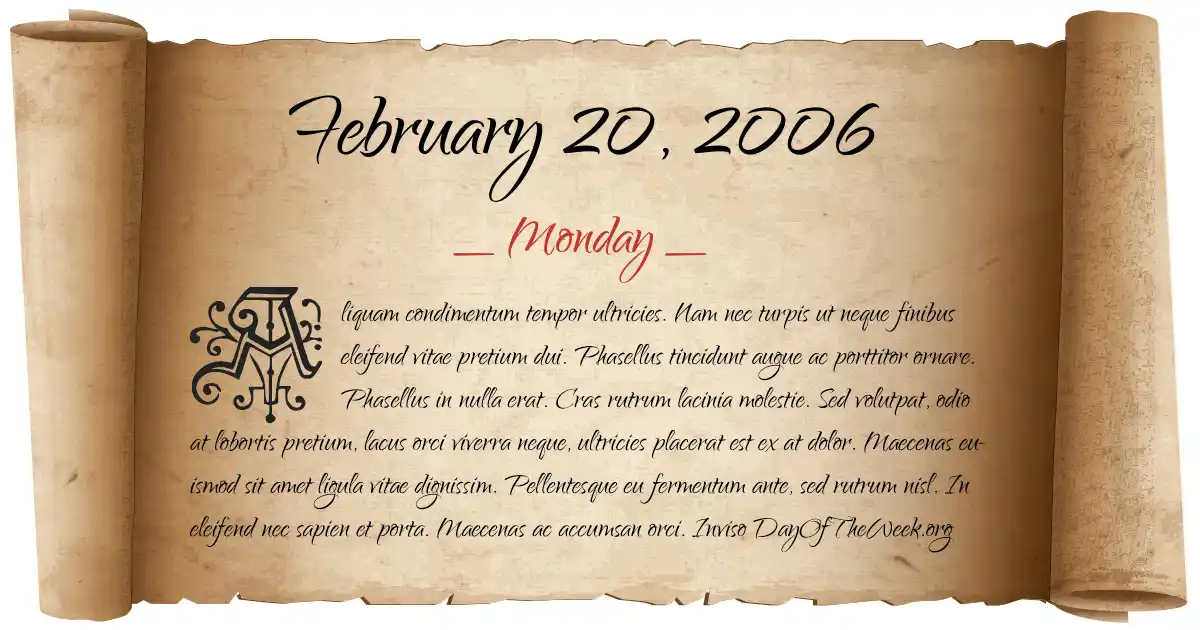 February 20, 2006
— Monday —
Aliquam condimentum tempor ultricies. Nam nec turpis ut neque finibus
eleifend vitae pretium dui. Phasellus tincidunt augue ac porttitor ornare.
Phasellus in nulla erat. Cras rutrum lacinia molestie. Sed volutpat, odio
at lobortis pretium, lacus orci viverra neque, ultricies placerat est ex at dolor. Maecenas eu-
ismod sit amet ligula vitae dignissim. Pellentesque eu fermentum ante, sed rutrum nisl. In
eleifend nec sapien et porta. Maecenas ac accumsan orci. Inviso DayOfTheWeek.org